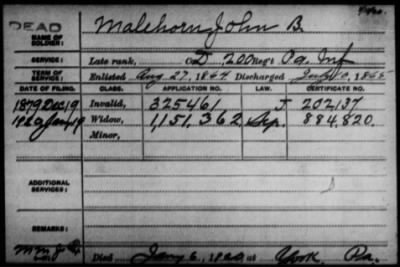 DEAD
NAME OF SOLDIER: Malehorn, John B.
SERVICE: Late rank, Co. D, 200 Reg't Pa. Inf
TERM OF SERVICE: Enlisted Aug. 27, 1864 Discharged 1865
DATE OF FILING. CLASS. APPLICATION NO. LAW. CERTIFICATE NO.
1879 Dec 19 Invalid, 325461 J 202137
1920 Jan 19 Widow, 1,151,362 Sep. 884,820.
Minor,
ADDITIONAL SERVICES:
REMARKS:
Died Jany 6, 1920 at York Pa.